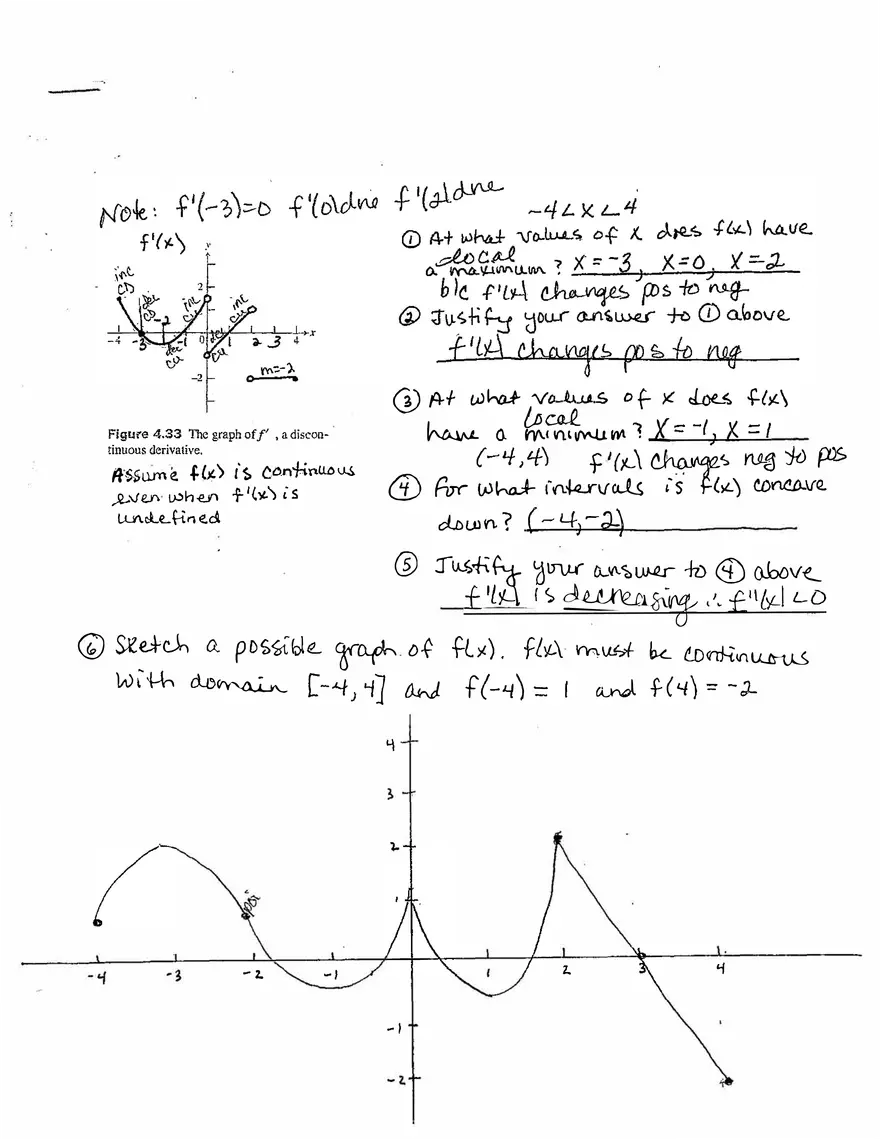 Note: f'(-3)=0 f'(0)dne f'(2)dne
-4<x<4
f'(x)
y
① At what values of x does f(x) have
local
a maximum? X=-3, X=0, X=2
b/c f'(x) changes pos to neg
② Justify your answer to ① above
f'(x) changes pos to neg
inc
CD
dec
CD
inc
CU
inc
CU
dec
CU
dec
CU
2
-4 -3 -2 -1 0 1 2 3 4 x
-2
m=-2
③ At what values of x does f(x)
local
have a minimum? X=-1, X=1
(-4,4) f'(x) changes neg to pos
Figure 4.33 The graph of f' , a discon-
tinuous derivative.
Assume f(x) is continuous
even when f'(x) is
undefined
④ For what intervals is f(x) concave
down? (-4,-2)
⑤ Justify your answer to ④ above
f'(x) is decreasing ∴ f''(x)<0
⑥ Sketch a possible graph of f(x). f(x) must be continuous
with domain [-4,4] and f(-4) = 1 and f(4) = -2
4
3
2
1
"poi"
-4 -3 -2 -1 1 2 3 4
-1
-2